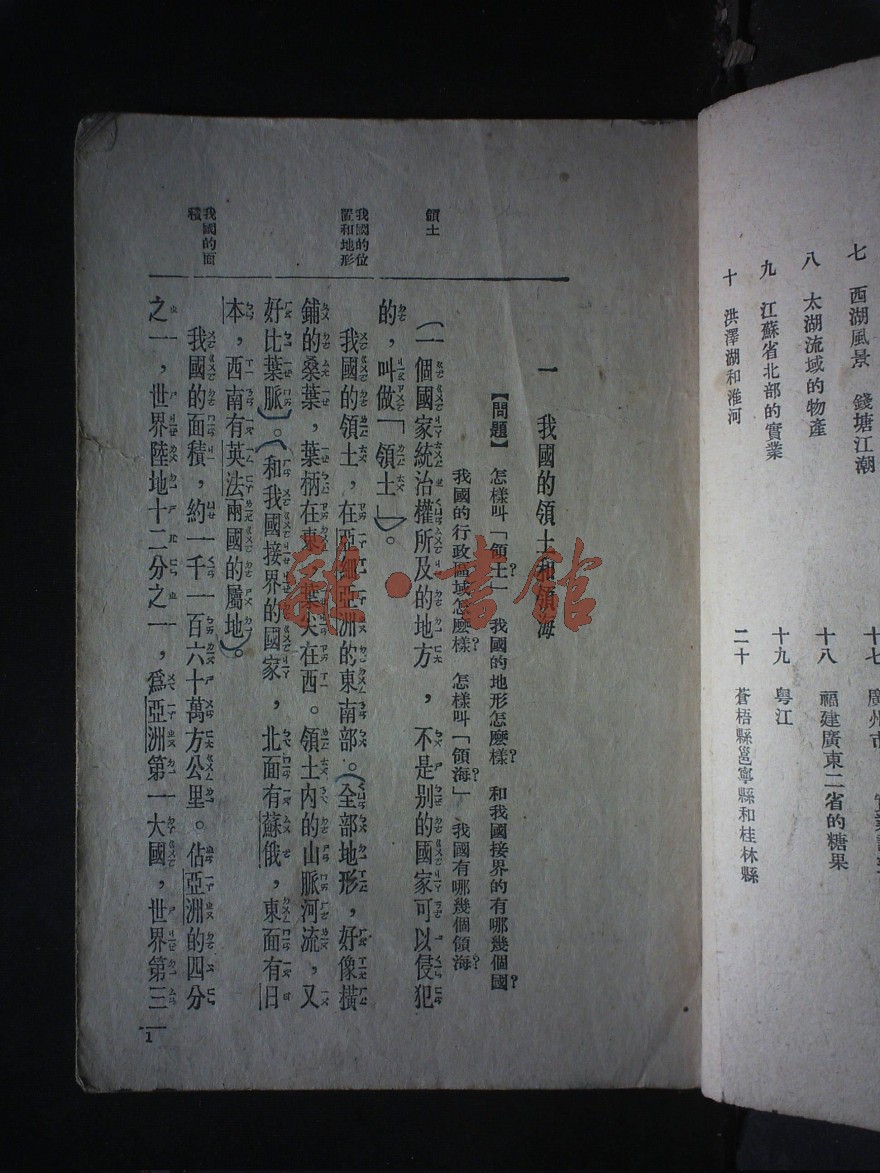 七 西湖風景 錢塘江潮
八 太湖流域的物產
九 江蘇省北部的實業
十 洪澤湖和淮河
廣州市
十八 福建廣東二省的糖果
十九 粵江
二十 蒼梧縣邕寧縣和桂林縣
一 我國的領土和領海
【問題】 怎樣叫「領土」? 我國的地形怎麼樣? 和我國接界的有哪幾個國?
我國的行政區域怎麼樣? 怎樣叫「領海」? 我國有哪幾個領海?
領土
(一個國家統治權所及的地方，不是別的國家可以侵犯
的，叫做「領土」)。
我國的位
置和地形
我國的領土，在亞細亞洲的東南部。(全部地形，好像橫
鋪的桑葉，葉柄在東，葉尖在西。領土內的山脈河流，又
好比葉脈)。(和我國接界的國家，北面有蘇俄，東面有日
本，西南有英法兩國的屬地)。
我國的面
積
我國的面積，約一千一百六十萬方公里。佔亞洲的四分
之一，世界陸地十二分之一，爲亞洲第一大國，世界第三
1
雜·書館